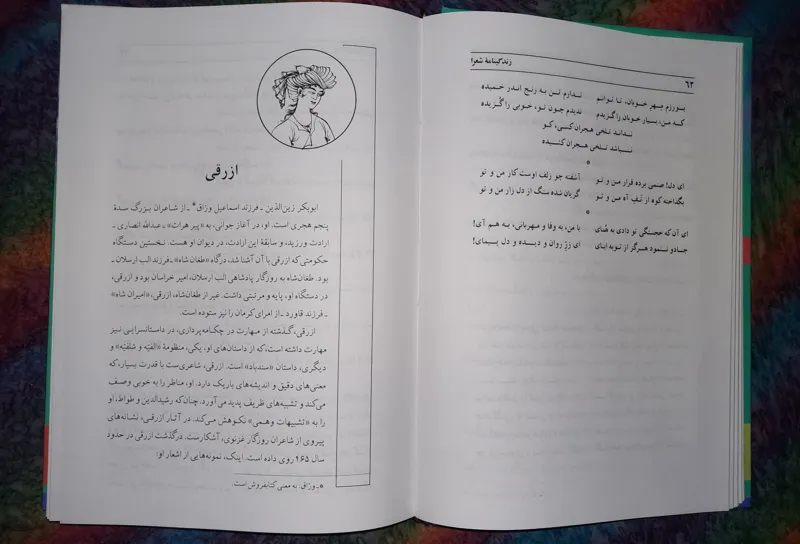 ۶۲
زندگینامهٔ شعرا
بورزم مهر خوبان، تا توانم
ندارم تن به رنج اندر خمیده
که من، بسیار خوبان را گزیدم
ندیدم چون تو، خوبی را گزیده
نداند تلخی هجران کسی، کو
نباشد تلخی هجران کشیده
*
ای دل! صنمی برده قرار من و تو
آشفته چو زلف اوست کار من و تو
بگداخته کوه از تَفِ آه من و تو
گریان شده سنگ از دل زار من و تو
*
ای آن که خجستگی تو دادی به هُمای
با من، به وفا و مهربانی، به هم آی!
جادو ننمود هرگز از توبه
ای زرّ روان و دیده و دل بیمای!
ازرقی
ابوبکر زین‌الدّین ـ فرزند اسماعیل ورّاق* ـ از شاعران بزرگ سدهٔ
پنجم هجری است. او، در آغاز جوانی، به «پیر هرات» ـ عبداللّه انصاری ـ
ارادت ورزید، و سابقهٔ این ارادت، در دیوان او هست. نخستین دستگاه
حکومتی که ازرقی با آن آشنا شد، درگاه «طغان شاه» ـ فرزند الب ارسلان ـ
بود. طغان‌شاه به روزگار پادشاهی الب ارسلان، امیر خراسان بود و ازرقی،
در دستگاه او، پایه و مرتبتی داشت. غیر از طغان‌شاه، ازرقی، «امیران شاه»
ـ فرزند قاورد ـ از امرای کرمان را نیز ستوده است.
ازرقی، گذشته از مهارت در چکامه‌پردازی، در داستانسرایی نیز
مهارت داشته است، که از داستان‌های او، یکی، منظومهٔ «الفیّه و شلفیّه» و
دیگری، داستان «سندباد» است. ازرقی، شاعری‌ست با قدرت بسیار، که
معنی‌های دقیق و اندیشه‌های باریک دارد. او، مناظر را به خوبی وصف
می‌کند و تشبیه‌های ظریف پدید می‌آورد. چنان‌که رشیدالدین و طواط، او
را به «تشبیهات وهمی» نکوهش می‌کند. در آثار ازرقی، نشانه‌های
پیروی از شاعران روزگار غزنوی، آشکارست. درگذشت ازرقی در حدود
سال ۴۶۵ روی داده است. اینک، نمونه‌هایی از اشعار او:
* ـ ورّاق: به معنی کتابفروش است.